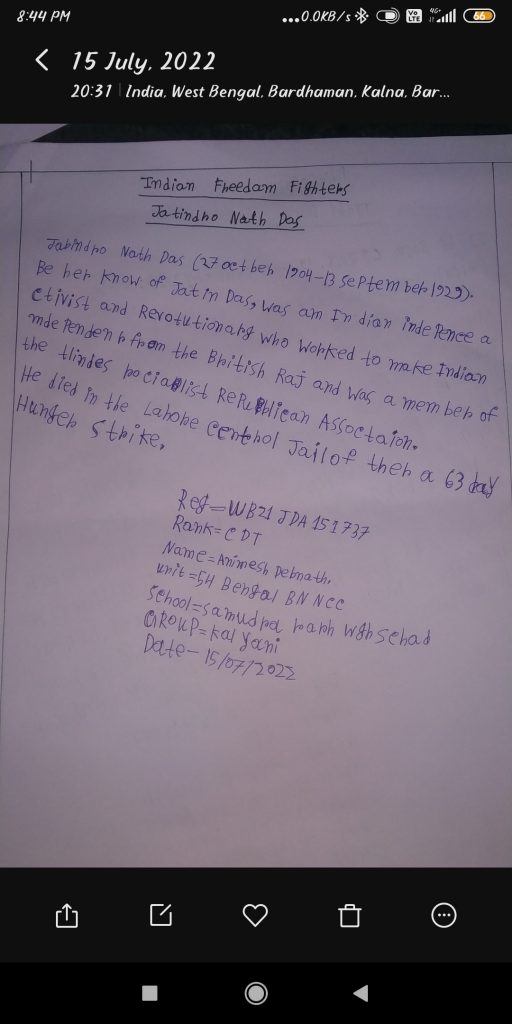 8:44 PM
...0.0KB/s
Vo LTE
4G+
66
15 July, 2022
20:31 | India, West Bengal, Bardhaman, Kalna, Bar...
Indian Freedam Fighters
Jatindro Nath Das
Jatindro Nath Das (27 octber 1904-13 september 1929).
Be her know of Jatin Das, was am Indian indepence a
ctivist and Revotutionarg who worked to make Indian
mdependent from the British Raj and was a member of
the Hindes pociaslist RePublican Assoctaion.
He died in the Lahore central Jail of ther a 63 day
Hunger Strike.
Reg=WB21 JDA 151737
Rank=CDT
Name=Animesh Debnath.
unit=54 Bengal BN NCC
School=samudra
GROUP=Kalyani
Date-15/07/2022